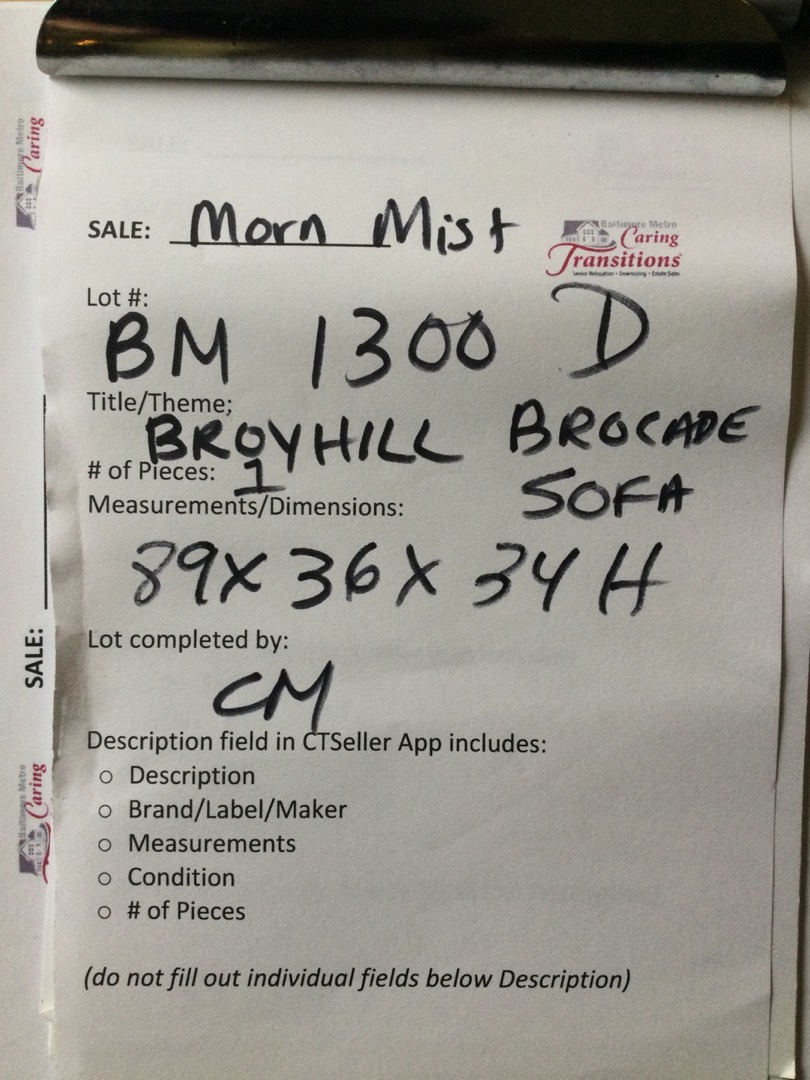 SALE: Morn Mist
Baltimore Metro
Caring
Transitions
Senior Relocation • Downsizing • Estate Sales
Lot #:
BM 1300 D
Title/Theme;
BROYHILL BROCADE
SOFA
# of Pieces: 1
Measurements/Dimensions:
89 X 36 X 34 H
Lot completed by:
CM
Description field in CTSeller App includes:
○ Description
○ Brand/Label/Maker
○ Measurements
○ Condition
○ # of Pieces
(do not fill out individual fields below Description)
Baltimore Metro
Caring
SALE:
Baltimore Metro
Caring